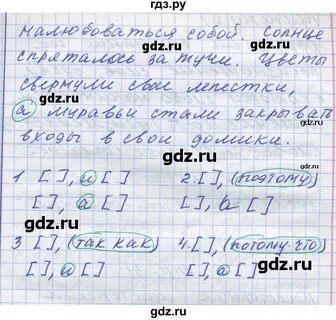 налюбоваться собой. Солнце
спряталось за тучи. Цветы
свернули свои лепестки,
а муравьи стали закрывать
входы в свои домики.
1 [ ], и [ ] 2. [ ], (поэтому)
[ ], а [ ] [ ], а [ ]
3 [ ], (так как) 4. [ ], (потому что)
[ ], и [ ] [ ], а [ ]
gdz.ru
gdz.ru
gdz.ru
gdz.ru
gdz.ru
gdz.ru
gdz.ru
gdz.ru